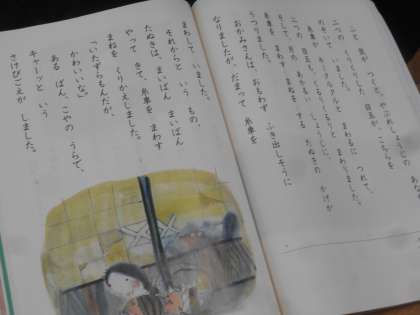 ふと 気が つくと、やぶれしょうじの
くりくりした 目玉が、こちらを
のぞいて いました。
糸車が キークルクルと まわるに つれて、
二つの 目玉も、くるりくるりと まわりました。
そして、月の あかるい しょうじに、
糸車を まわす まねを する たぬきの かげが
うつりました。
おかみさんは、おもわず ふき出しそうに
なりましたが、だまって 糸車を
まわして いました。
それからと いう もの、
たぬきは、まいばん まいばん
やって きて、糸車を まわす
まねを くりかえしました。
「いたずらもんだが、
かわいいな。」
ある ばん、こやの うらで、
キャーッと いう
さけびごえが しました。